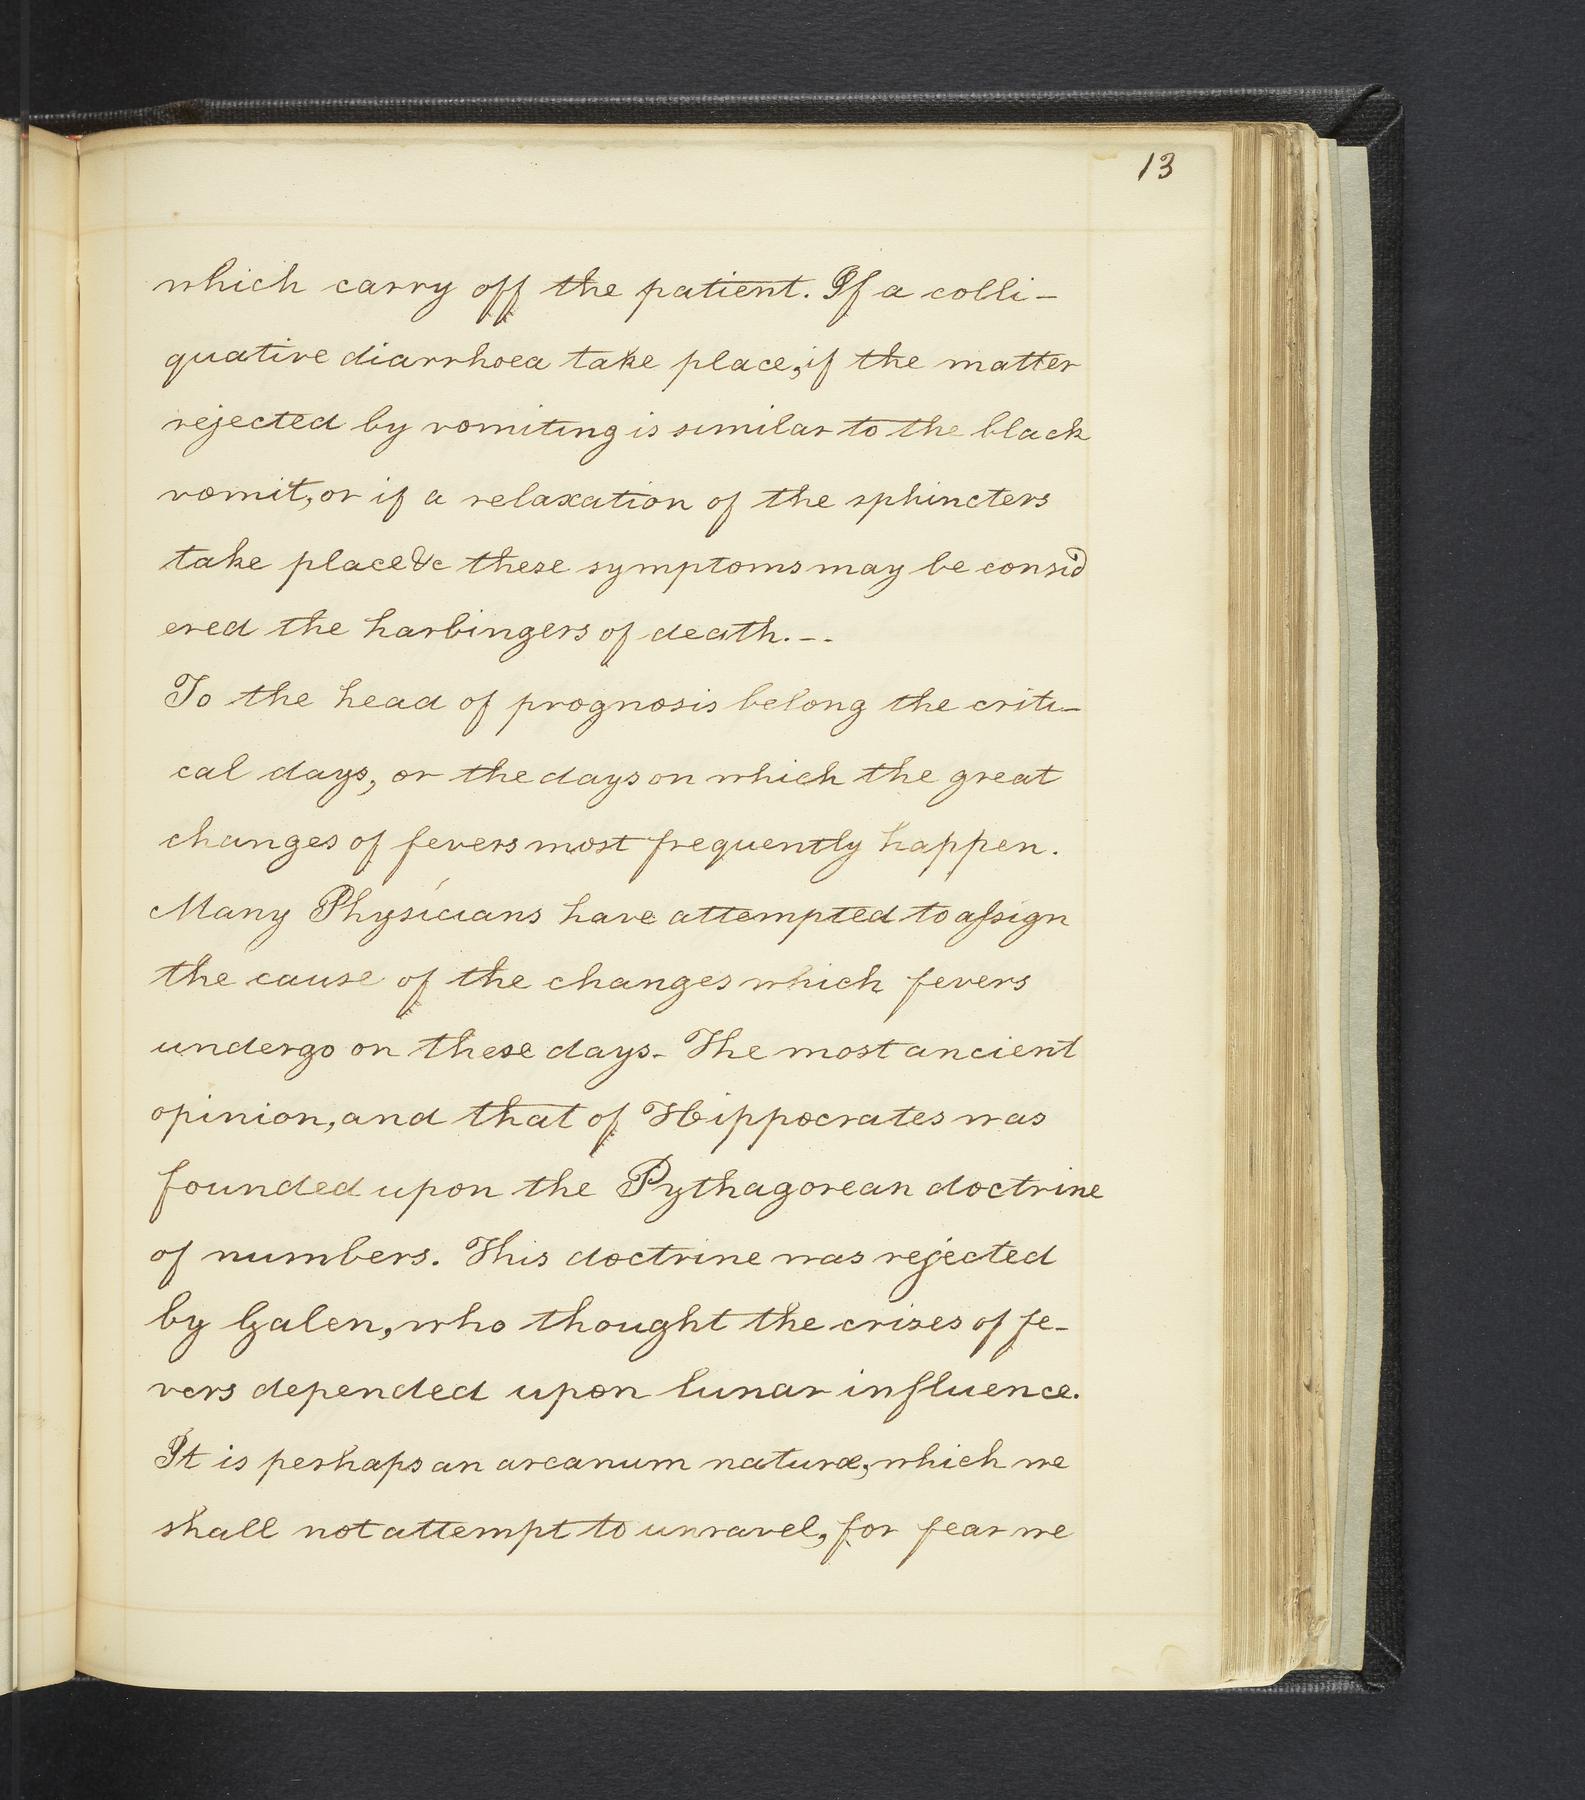 13
which carry off the patient. If a colli-
quative diarrhoea take place, if the matter
rejected by vomiting is similar to the black
vomit, or if a relaxation of the sphincters
take place &c these symptoms may be consid
ered the harbingers of death.--
To the head of prognosis belong the criti-
cal days, or the days on which the great
changes of fevers most frequently happen.
Many Physicians have attempted to aſsign
the cause of the changes which fevers
undergo on these days- The most ancient
opinion, and that of Hippocrates was
founded upon the Pythagorean doctrine
of numbers. This doctrine was rejected
by Galen, who thought the crises of fe-
vers depended upon lunar influence.
It is perhaps an arcanum naturæ, which we
shall not attempt to unravel, for fear we